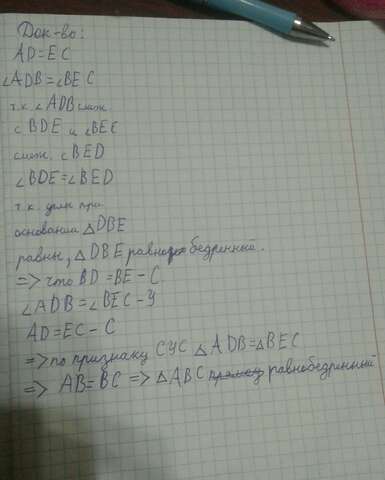 Док-во:
AD=EC
∠ADB=∠BEC
т.к. ∠ADB смеж.
с BDE и ∠BEC
смеж. с BED
∠BDE=∠BED
т.к. углы при
основании △DBE
равны, △DBE равнобедренный.
=> что BD=BE-С
∠ADB=∠BEC-У
AD=EC-С
=> по признаку СУС △ADB=△BEC
=> AB=BC => △ABC равнобедренный